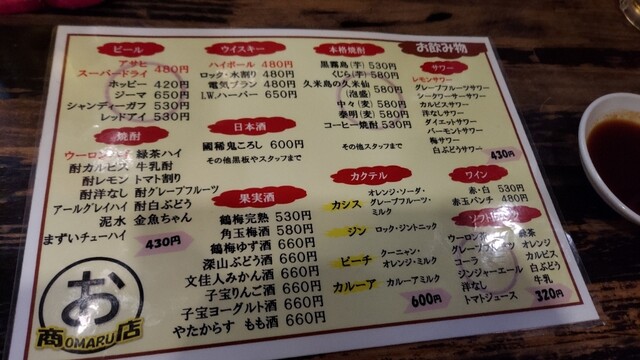 お飲み物
ビール
アサヒ
スーパードライ 480円
ホッピー 420円
ジーマ 550円
シャンディーガフ 530円
レッドアイ 530円
ウイスキー
ハイボール 480円
ロック・水割り 480円
電気ブラン 480円
I.W.ハーパー 650円
本格焼酎
黒霧島(芋) 530円
くじら(芋) 580円
久米島の久米仙
(泡盛) 580円
中々(麦) 580円
泰明(麦) 580円
コーヒー焼酎 530円
その他スタッフまで
サワー
レモンサワー
グレープフルーツサワー
シークワーサーサワー
カルピスサワー
洋なしサワー
ダイエットサワー
バーモントサワー
梅サワー
白ぶどうサワー
430円
焼酎
ウーロンハイ 緑茶ハイ
酎カルピス 牛乳酎
酎レモン トマト割り
酎洋なし 酎グレープフルーツ
アールグレイハイ 酎白ぶどう
泥水 金魚ちゃん
まずいチューハイ
430円
日本酒
國稀鬼ころし 600円
その他黒板やスタッフまで
果実酒
鶴梅完熟 530円
角玉梅酒 580円
鶴梅ゆず酒 660円
深山ぶどう酒 660円
文佳人みかん酒 660円
子宝りんご酒 660円
子宝ヨーグルト酒 660円
やたからす もも酒 660円
カクテル
カシス オレンジ・ソーダ・
グレープフルーツ・
ミルク
ジン ロック・ジントニック
ピーチ ウーニャン・
オレンジ・ミルク
カルーア カルーアミルク
600円
ワイン
赤・白 530円
赤玉パンチ 480円
ソフトドリンク
ウーロン 緑茶
グレープフルーツ オレンジ
コーラ カルピス
ジンジャーエール 白ぶどう
洋なし 牛乳
トマトジュース 320円
お
商OMARU店